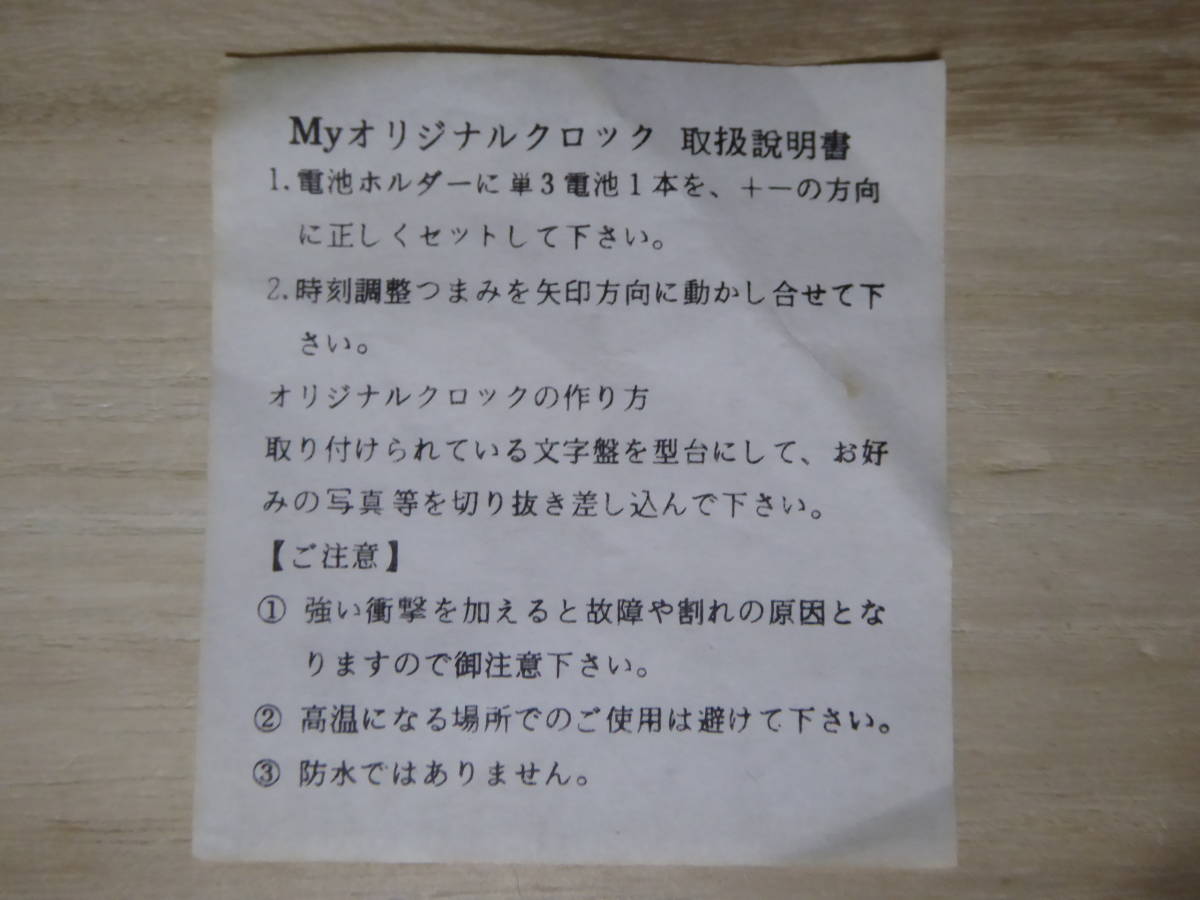 Myオリジナルクロック 取扱説明書
1.電池ホルダーに単3電池1本を、+−の方向
に正しくセットして下さい。
2.時刻調整つまみを矢印方向に動かし合せて下
さい。
オリジナルクロックの作り方
取り付けられている文字盤を型台にして、お好
みの写真等を切り抜き差し込んで下さい。
【ご注意】
① 強い衝撃を加えると故障や割れの原因とな
りますので御注意下さい。
② 高温になる場所でのご使用は避けて下さい。
③ 防水ではありません。